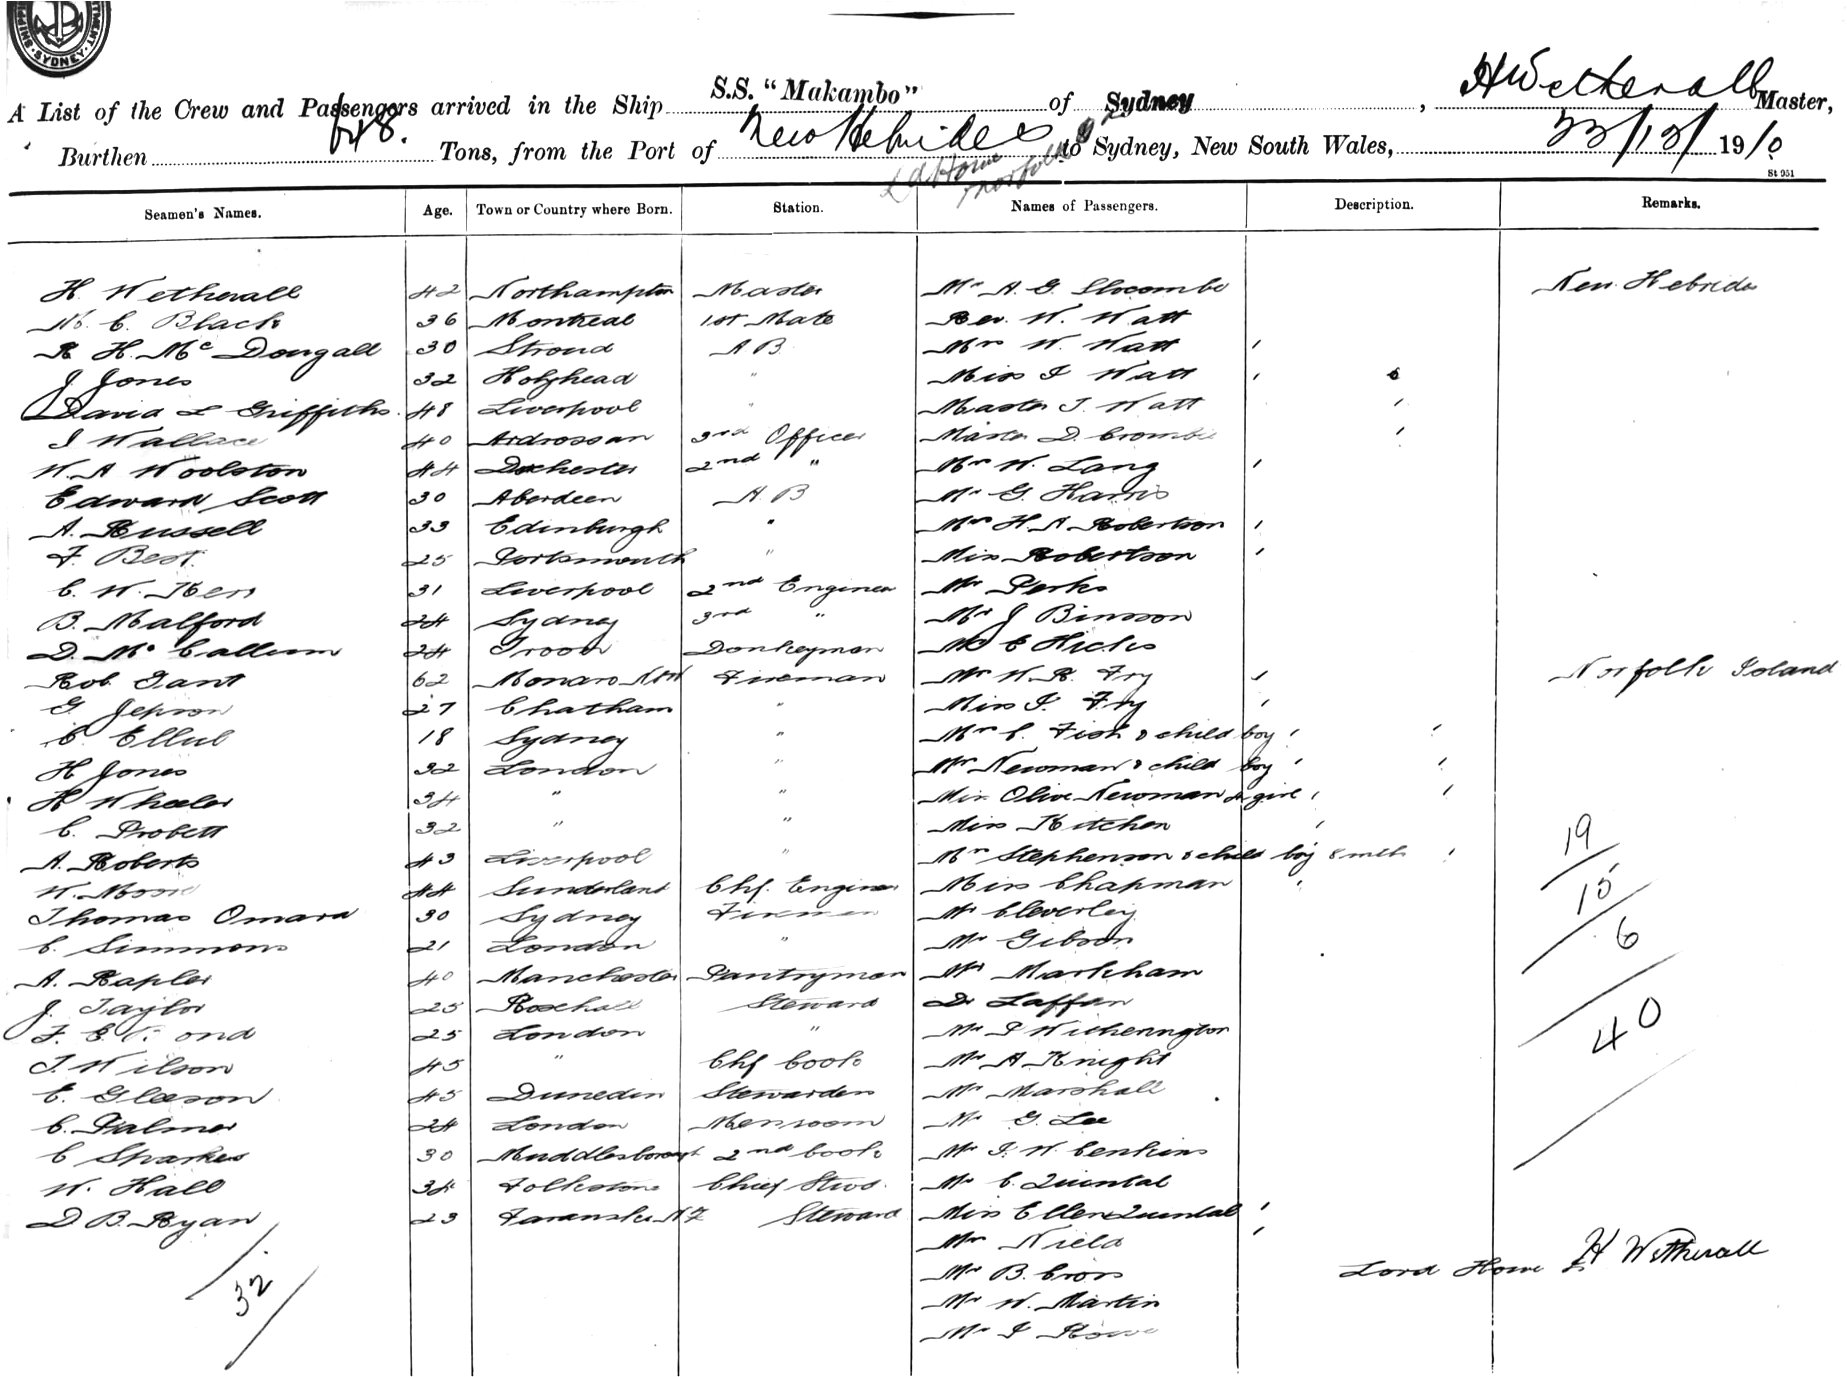 SHIPPING DEPARTMENT. SYDNEY.
S.S. "Makambo"
H Wetherall
A List of the Crew and Passengers arrived in the Ship of Sydney, Master,
Burthen 648. Tons, from the Port of New Hebrides to Sydney, New South Wales, 22/12/1910
Ld Howe
Norfolk
St 951
Seamen's Names. Age. Town or Country where Born. Station. Names of Passengers. Description. Remarks.
H. Wetherall 42 Northampton Master Mr A. G. Slocombe New Hebrides
C. Black 36 Montreal 1st Mate Rev. W. Watt
R H. Mc Dougall 30 Stroud A B. Mrs W. Watt '
J Jones 32 Holyhead " Miss I Watt '
David L Griffiths. 48 Liverpool " Master J. Watt '
J Wallace 40 Ardrossan 3rd Officer Master D. Crombie '
W. A Woolston 44 Dochester 2nd " Mrs W. Lang '
Edward Scott 30 Aberdeen A. B Mr G. Harris
A. Russell 33 Edinburgh " Mrs H. A Robertson '
F. Best. 25 Portsmouth " Miss Robertson '
C. W. Kerr 31 Liverpool 2nd Engineer Mr Perks
B. Malford 24 Sydney 3rd " Mr J Binsson
D. Mc Callum 24 Troon Donkeyman Mr C Hicks
Rob. Tant 62 Monaro NSW Fireman W. R. Fry ' Norfolk Island
G. Jepson 27 Chatham " Miss I. Fry '
C. Ellul 18 Sydney " Mrs C. Fish & child boy ' '
H Jones 32 London " Mrs Newman & child boy ' '
H Wheeler 34 " " Miss Olive Newman girl ' '
C. Probett 32 " " Miss Kitchen '
19
A. Roberts 43 Liverpool " Mrs Stephenson & child boy 8 mths '
W. Moore 44 Sunderland Chf. Engineer Miss Chapman '
15
Thomas Omara 30 Sydney Fireman Mr Cleverley
6
C. Simmons 21 London " Mr Gibson
A. Rapler 40 Manchester Pantryman Mr Markham
J. Taylor 25 Steward Dr Laffan
40
F. ond 25 London " Mr Witherington
T. Wilson 45 " Chf Cook Mr A Knight
E. Gleeson 45 Dunedin Stewardess Mr Marshall
C. Palmer 24 London Messroom Mr G. Lee
C Sparkes 30 Muddlesborough 2nd Cook Mr J. W. Cenkins
W. Hall 34 Folkstone Chief Stwd. Mr C. Quintal
D. B. Ryan 23 Taranaki NZ Steward Miss Ellen Quintal '
Mrs Nield '
32
Mr B. Cross Lord Howe Is H Wetherall
Mr W. Martin
Mr Rowe